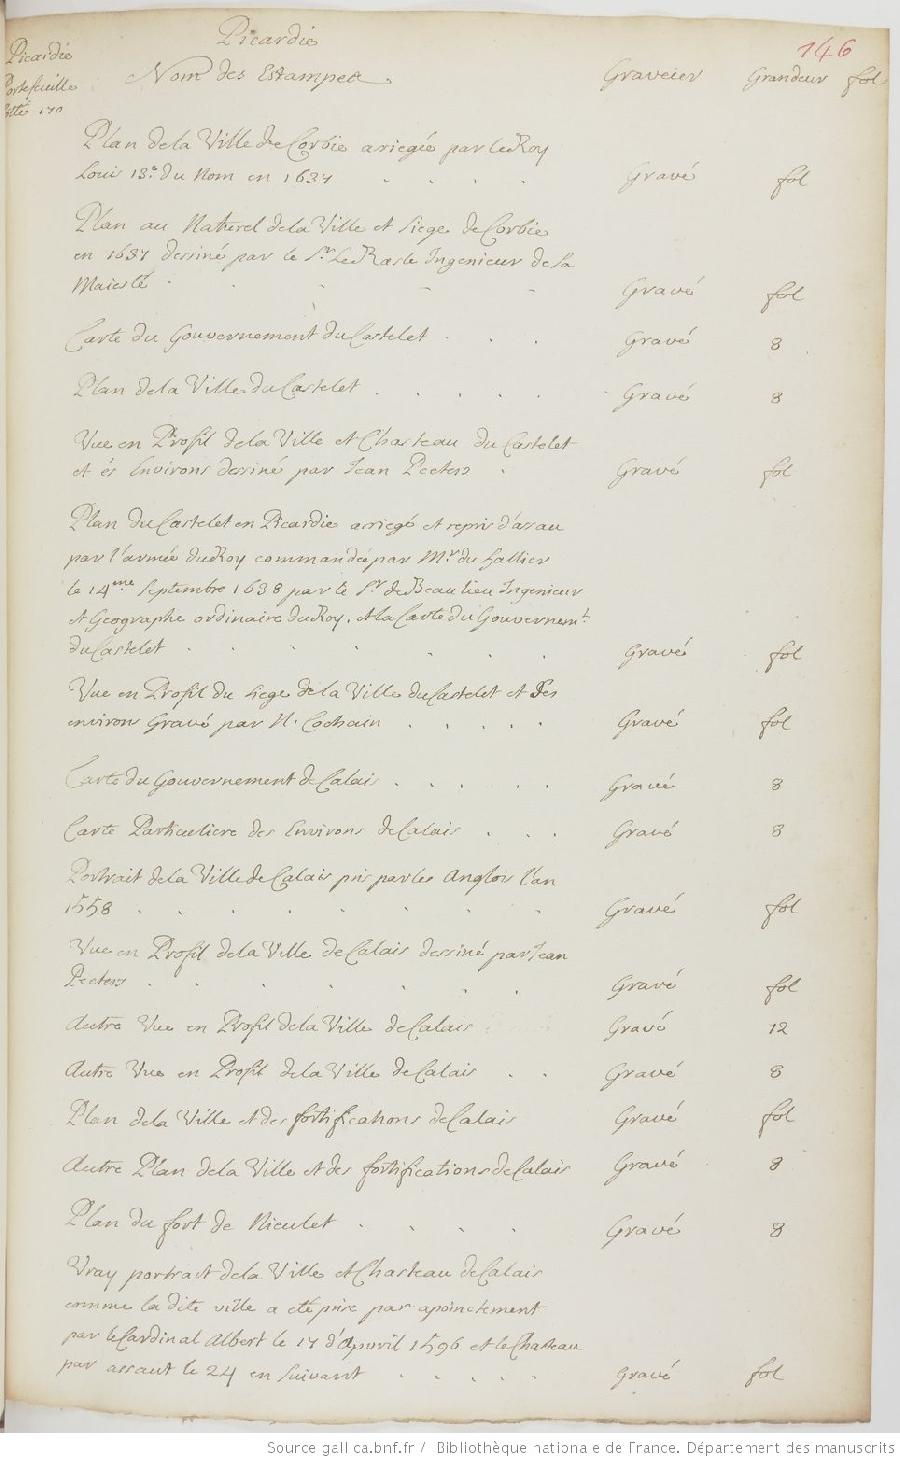 Picardie
146
Picardie
Portefeuille
Coté 170
Nom des Estampes.
Graveier Grandeur fol
Plan de la Ville de Corbie assiegée par le Roy
Louis 13.e du Nom en 1637 . . . . Gravé fol
Plan au Naturel de la Ville et Siege de Corbie
en 1637 dessiné par le Sr. Le Rasle Ingenieur de Sa
Maiesté . . . . . Gravé fol
Carte du Gouvernement du Castelet . . . Gravé 8
Plan de la Ville du Castelet . . . . . Gravé 8
Vue en Profil de la Ville et Chasteau du Castelet
et és Environs dessiné par Jean Peeters . Gravé fol
Plan du Castelet en Picardie assiegé et repris d'assau
par l'armée du Roy commandée par Mr. du Hallier
le 14eme Septembre 1638 par le Sr. de Beaulieu Ingenieur
et Geographe ordinaire du Roy, et la Carte du Gouvernemt
du Castelet . . . . . . . Gravé fol
Vue en Profil du siege de la Ville du Castelet et des
environs Gravé par N. Cochin . . . . . Gravé fol
Carte du Gouvernement de Calais . . . . . Gravé 8
Carte Particuliere des Environs de Calais . . . Gravé 8
Portrait de la Ville de Calais pris par les Anglois l'an
1558 . . . . . . . Gravé fol
Vue en Profil de la Ville de Calais dessiné par Jean
Peeters . . . . . . Gravé fol
Autre Vue en Profil de la Ville de Calais Gravé 12
Autre Vue en Profil de la Ville de Calais . . Gravé 8
Plan de la Ville et des fortifications de Calais Gravé fol
Autre Plan de la Ville et des fortifications de Calais Gravé 8
Plan du fort de Nieulet . . . . Gravé 8
Vray portrait de la Ville et Chasteau de Calais
comme la dite ville a eté prise par apoinctement
par le Cardinal Albert le 17 d'Apvril 1596 et le Chasteau
par assaut le 24 en suivant . . . . . Gravé fol
Source gallica.bnf.fr / Bibliothèque nationale de France. Département des manuscrits